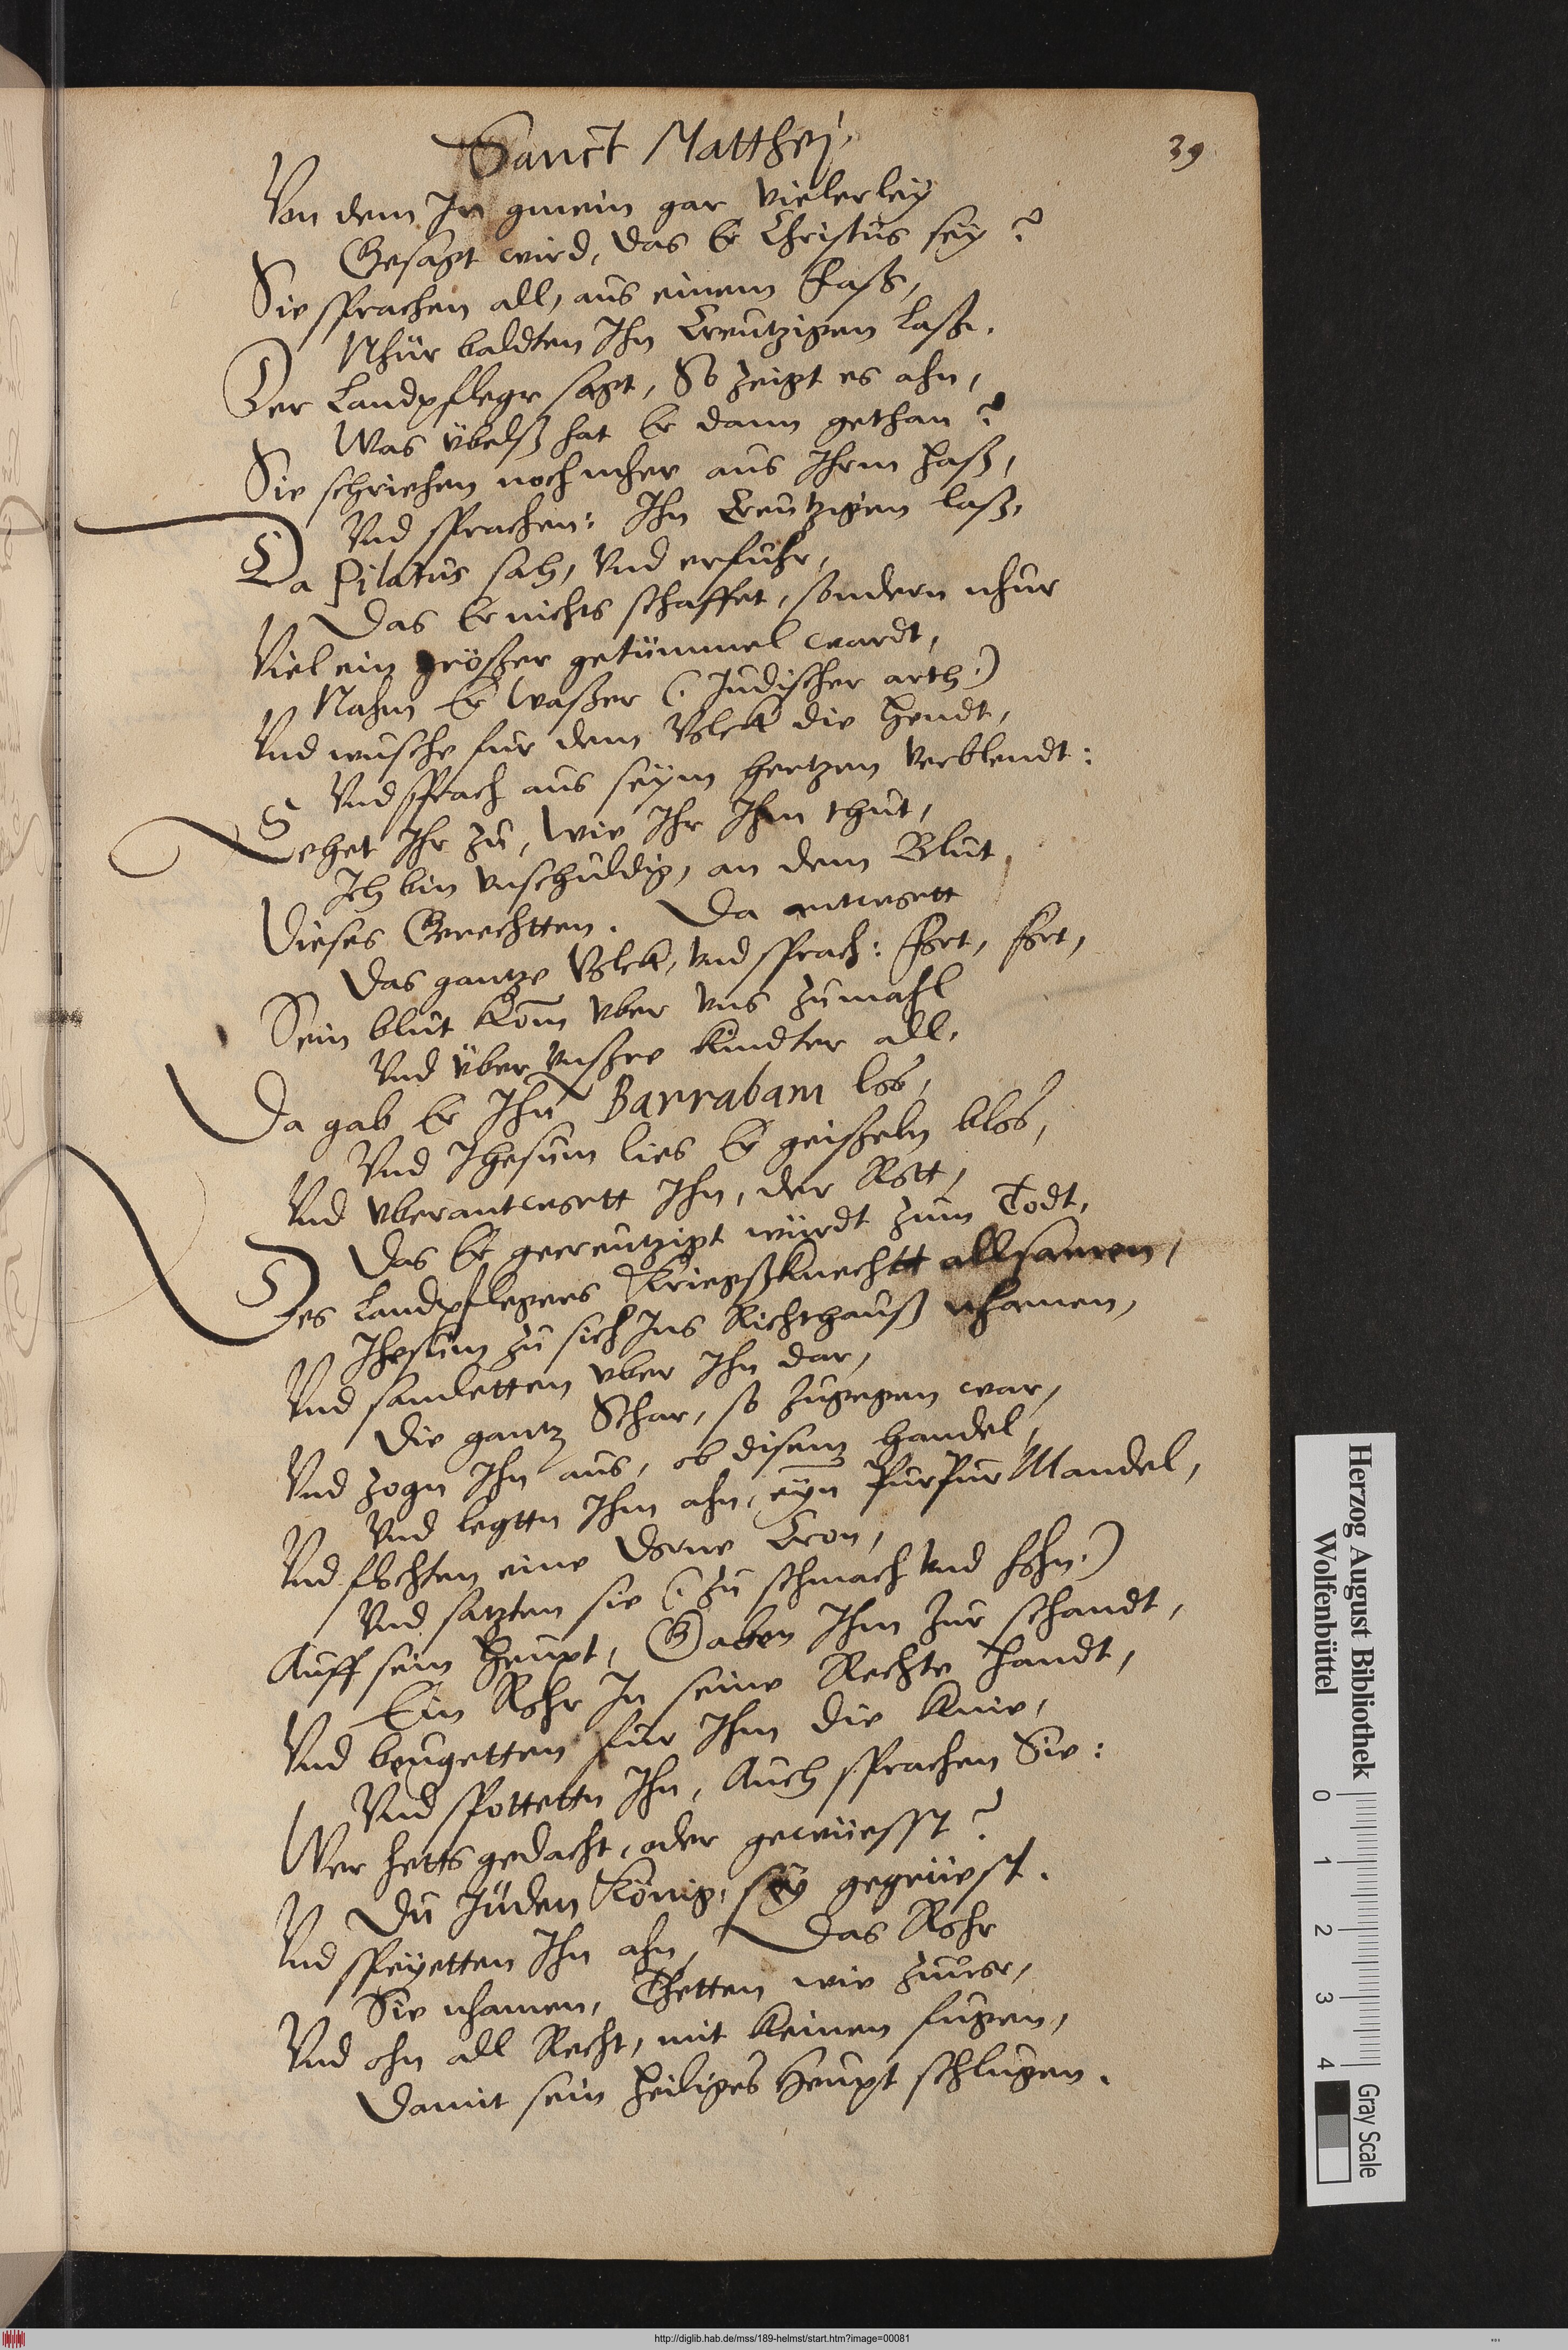 Sanct Matthej.
39
Von dem In gmein gar vielerleÿ
Gesagt wird, das Er Christus seÿ?
Sie sprachen all, aus einem Faß,
Nhür baldten Ihn Creutzigen laß.
Der Landpfleger sagt, So zeigt es ahn,
Was übelß hat Er dann gethan?
Sie schriehen noch mher aus Ihrm haß,
Vnd sprachen: Ihn Creutzigen laß.
Da Pilatus sah, Vnd erfuhr,
Das Er nichts schaffet, sondern nhur
Viel ein größer getümmel wardt,
Nahm Er Waßer (: Judischer arth:)
Vnd wusche fur dem Volck die Hendt,
Vnd sprach aus seÿm hertzen verblendt:
Sehet Ihr zu, Wie Ihr Ihm thut,
Ich bin vnschuldig, an dem Blut
Dieses Gerechtten. Da antwortt
Das gantze Volck, vnd sprach: fort, fort,
Sein blut kom̅ vber vns zumahl
Vnd über vnßre kindter all.
Da gab Er Ihn Barrabam los,
Vnd Ihesum lies Er geißeln blos,
Vnd vberantwortt Ihn, der Rott,
Das Er gecreutzigt würdt zum Todt.
Des Landpflegers Kriegßknechtt allsamen,
Ihesum zu sich Ins Richthauß nhamen,
Vnd samletten vber Ihn dar,
Die gantz Schar, so zugegen war,
Vnd zogn Ihn aus, ob disem handel,
Vnd legttn Ihm ahn, eÿn PurPur Mandel,
Vnd flochten eine Dorne Cron,
Vnd satzten sie (: zu schmach vnd hohn:)
Auff sein Heupt, Gaben Ihm zur schandt,
Ein Rohr In seine Rechte handt,
Vnd beugetten fur Ihm die knie,
Vnd spottettn Ihn, Auch sprachen Sie:
Wer hetts gedacht, oder gewüesst?
Du Jüden König, seÿ gegrüest.
Vnd speÿetten Ihn ahn, Das Rohr
Sie nhamen, Thetten wie zuvor,
Vnd ohn all Recht, mit keinen fugen,
Damit sein heiliges Heupt schlugen.
Herzog August Bibliothek
Wolfenbüttel
0 1 2 3 4
Gray Scale
http://diglib.hab.de/mss/189-helmst/start.htm?image=00081